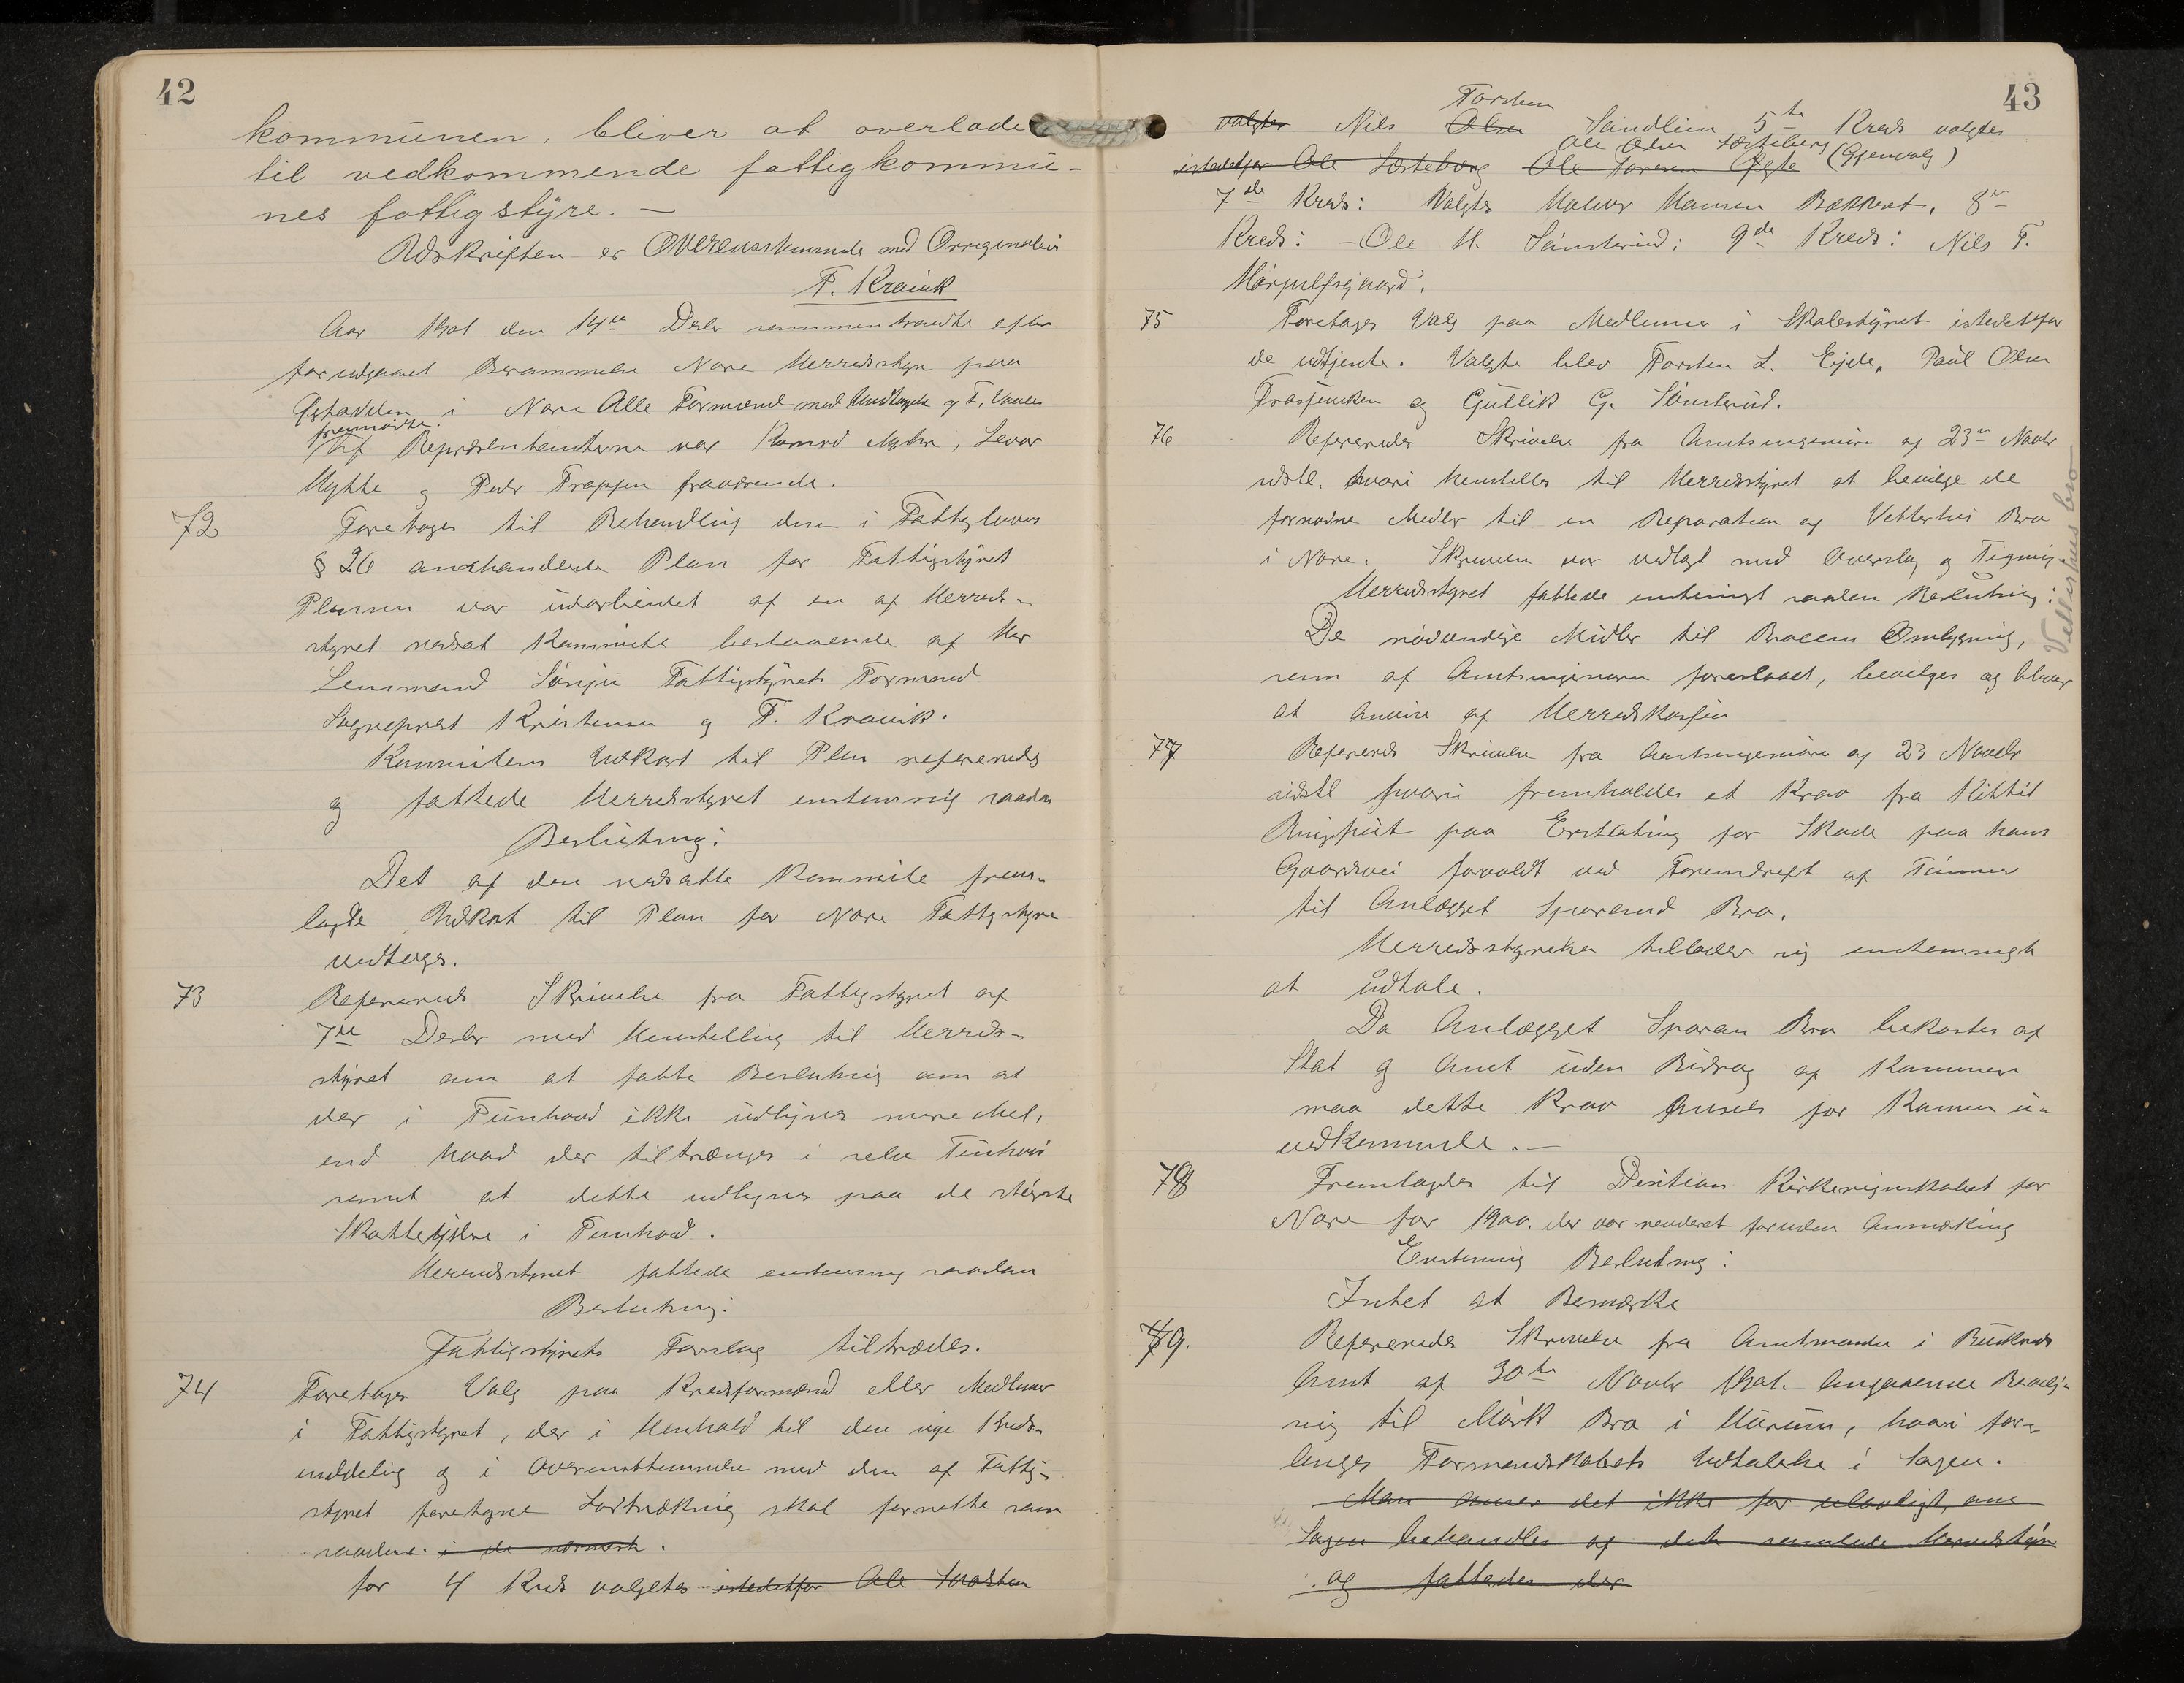 42
kommunen, bliver at overlade
til vedkommende fattigkommu-
nes fattigstyre. —
Udskriften er Overensstemmende med Orriginalen
T. Kravik
Aar 1901 den 14de Desbr sammentraadte efter
forudgaaet Berammelse Nore Herredsstyre paa
i Nore Alle Formænd med Undtagelse af T.
fremmødte.
Af Repræsentanterne var Myhre, Sevar
Hytte og Peder Trapjen fraværende.
72 Foretoges til Behandling den i Fattiglovens
§ 26 omhandlede Plan for Fattigstyret
Planen var udarbeidet af en af Herreds-
styret nedsat Kommite bestaaende af Hr
Lensmand Sønju Fattigstyrets Formand
Sogneprest Kristensen og T. Kravik.
Kommiteens Udkast til Plan refereredes
og fattede Herredsstyret enstemmig saadan
Beslutning:
Det af den nedsatte Kommite frem-
lagte Udkast til Plan for Nore Fattigstyre
vedtages.
73 Refereredes Skrivelse fra Fattigstyret af
7de Desbr med Henstilling til Herreds-
styret om at fatte Beslutning om at
der i Tunhovd ikke udlignes mere Mel,
end hvad der tiltrænges i selve Tunhovd
samt at dette udlignes paa de største
Skatteydere i Tunhovd.
Herredsstyret fattede enstemmig saadan
Beslutning:
Fattigstyrets Forslag tiltrædes.
74 Foretoges Valg paa Kredsformænd eller Medlemmer
i Fattigstyret, der i Henhold til den nye Kreds-
inddeling og i Overensstemmelse med den af Fattig-
styret foretagne Lodtrækning skal forrette som
saadanne i de nærmeste.
for 4 Kreds valgtes istedetfor Ole
43
Torsten
valgtes Nils Olsen Sandlien 5te Kreds valgtes
Ole Olsen Sørteberg
istedetfor Ole Sørteberg Ole (Gjenvalg)
7de Kreds: Valgtes Halvor Hansen Bakkerst, 8de
Kreds: — Ole H. Simlerud; 9de Kreds: Nils T.
75 Foretoges Valg paa Medlemmer i Skolestyret istedetfor
de udtjente. Valgte blev Torsten L. Ejde, Paul Olsen
og Gullik G. Simlerud.
76 Refereredes Skrivelse fra Amtsingeniøren af 23de Novbr
sidstl. hvori henstilles til Herredsstyret at bevilge de
fornødne Midler til en Reparation af Vetterhus Bro
i Nore. Skrivelsen var vedlagt med Overslag og Tegning
Herredsstyret fattede enstemmigt saadan Beslutning:
De nødvendige Midler til Broens Ombygning,
som af Amtsingeniøren foreslaaet, bevilges og bliver
at anvise af Herredskassen
Vetterhus bro
77 Refereredes Skrivelse fra Amtsingeniøren af 23 Novbr
sidstl hvori fremholdes et Krav fra Kittil
paa Erstatning for Skade paa hans
Gaardsvei forvoldt ved Fremdrift af Tømmer
til Anlægget Sporand Bro.
Herredsstyrelsen tillader sig enstemmigt
at udtale.
Da Anlægget Sporan Bro bekostes af
Stat og Amt uden Bidrag af Kommunen
maa dette Krav ansees for Kommunen u-
vedkommende. —
78 Fremlagdes til Desition Kirkeregnskabet for
Nore for 1900. der var revideret foruden Anmærkning
Enstemmig Beslutning:
Intet at Bemærke
79. Refereredes Skrivelse fra Amtmanden i Buskeruds
Amt af 30te Novbr 1901. Angaaende Bevilg-
ning til Mørk Bro i Hurum, hvori for-
langes Formandskabets Udtalelse i Sagen.
Man anser det ikke for ulovligt, om
Sagen behandles af det samlede Herredsstyre
og fattedes der